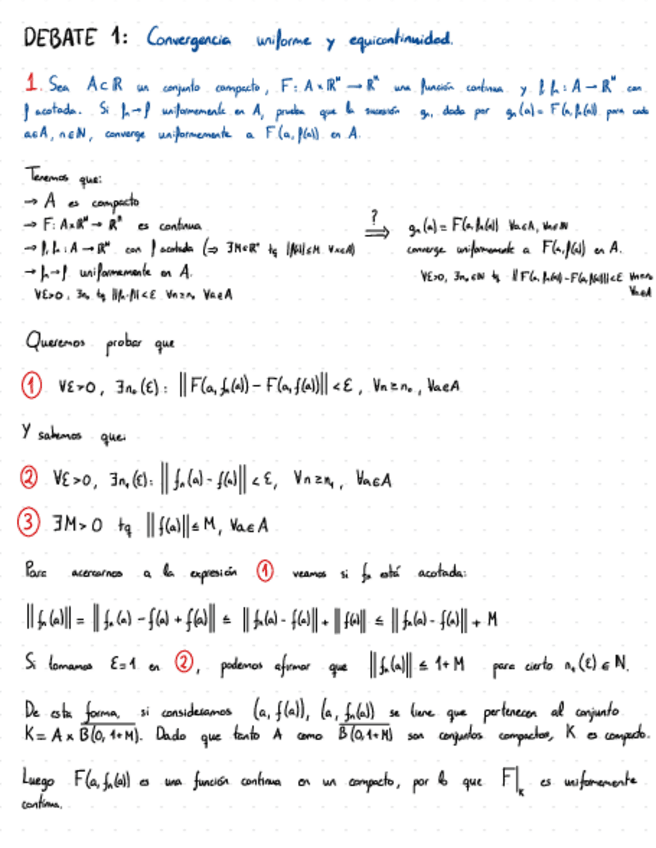 DEBATE 1: Convergencia uniforme y equicontinuidad.
1. Sea A⊂ℝ un conjunto compacto, F: A×ℝᴺ → ℝᴺ una función continua y f, fₙ: A → ℝᴺ con
f acotada. Si fₙ→f uniformemente en A, prueba que la sucesión gₙ, dada por gₙ(a) = F(a, fₙ(a)) para cada
a∈A, n∈ℕ, converge uniformemente a F(a, f(a)) en A.
Tenemos que:
→ A es compacto
→ F: A×ℝᴺ → ℝᴺ es continua
→ f, fₙ: A → ℝᴺ con f acotada (⇒ ∃M∈ℝ⁺ tq ‖f(x)‖≤M ∀x∈A)
→ fₙ→f uniformemente en A.
∀ε>0, ∃n₀ tq ‖fₙ-f‖<ε ∀n≥n₀ ∀a∈A
?
⟹
gₙ(a) = F(a, fₙ(a)) ∀a∈A, ∀n∈ℕ
converge uniformemente a F(a, f(a)) en A.
∀ε>0, ∃n₀∈ℕ tq ‖F(a, fₙ(a))-F(a, f(a))‖<ε ∀n≥n₀
∀a∈A
Queremos probar que
① ∀ε>0, ∃n₀(ε): ‖F(a, fₙ(a)) - F(a, f(a))‖ < ε, ∀n≥n₀, ∀a∈A
Y sabemos que:
② ∀ε>0, ∃n₁(ε): ‖fₙ(a) - f(a)‖ < ε, ∀n≥n₁, ∀a∈A
③ ∃M>0 tq ‖f(a)‖ ≤ M, ∀a∈A
Para acercarnos a la expresión ① veamos si fₙ está acotada:
‖fₙ(a)‖ = ‖fₙ(a) - f(a) + f(a)‖ ≤ ‖fₙ(a) - f(a)‖ + ‖f(a)‖ ≤ ‖fₙ(a) - f(a)‖ + M
Si tomamos ε=1 en ②, podemos afirmar que ‖fₙ(a)‖ ≤ 1+M para cierto n₁(ε) ∈ ℕ.
De esta forma, si consideramos (a, f(a)), (a, fₙ(a)) se tiene que pertenecen al conjunto
K = A × B̅(̅0̅,̅ ̅1̅+̅M̅)̅. Dado que tanto A como B̅(̅0̅,̅ ̅1̅+̅M̅)̅ son conjuntos compactos, K es compacto.
Luego F(a, fₙ(a)) es una función continua en un compacto, por lo que F|ₖ es uniformemente
continua.